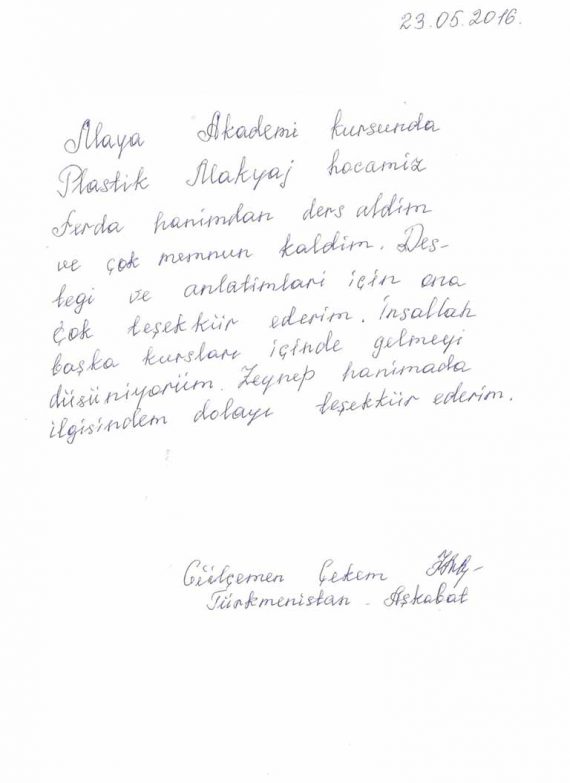 23.05.2016.
Maya Akademi kursunda
Plastik Makyaj hocamiz
Ferda hanimdan ders aldim
ve çok memnun kaldim. Des-
tegi ve anlatimlari için ona
çok teşekkür ederim. İnsallah
başka kursları içinde gelmeyi
düsüniyorüm. Zeynep hanimada
ilgisindem dolayı teşekkür ederim.
Gülçemen Çekem
Türkmenistan. Aşkabat